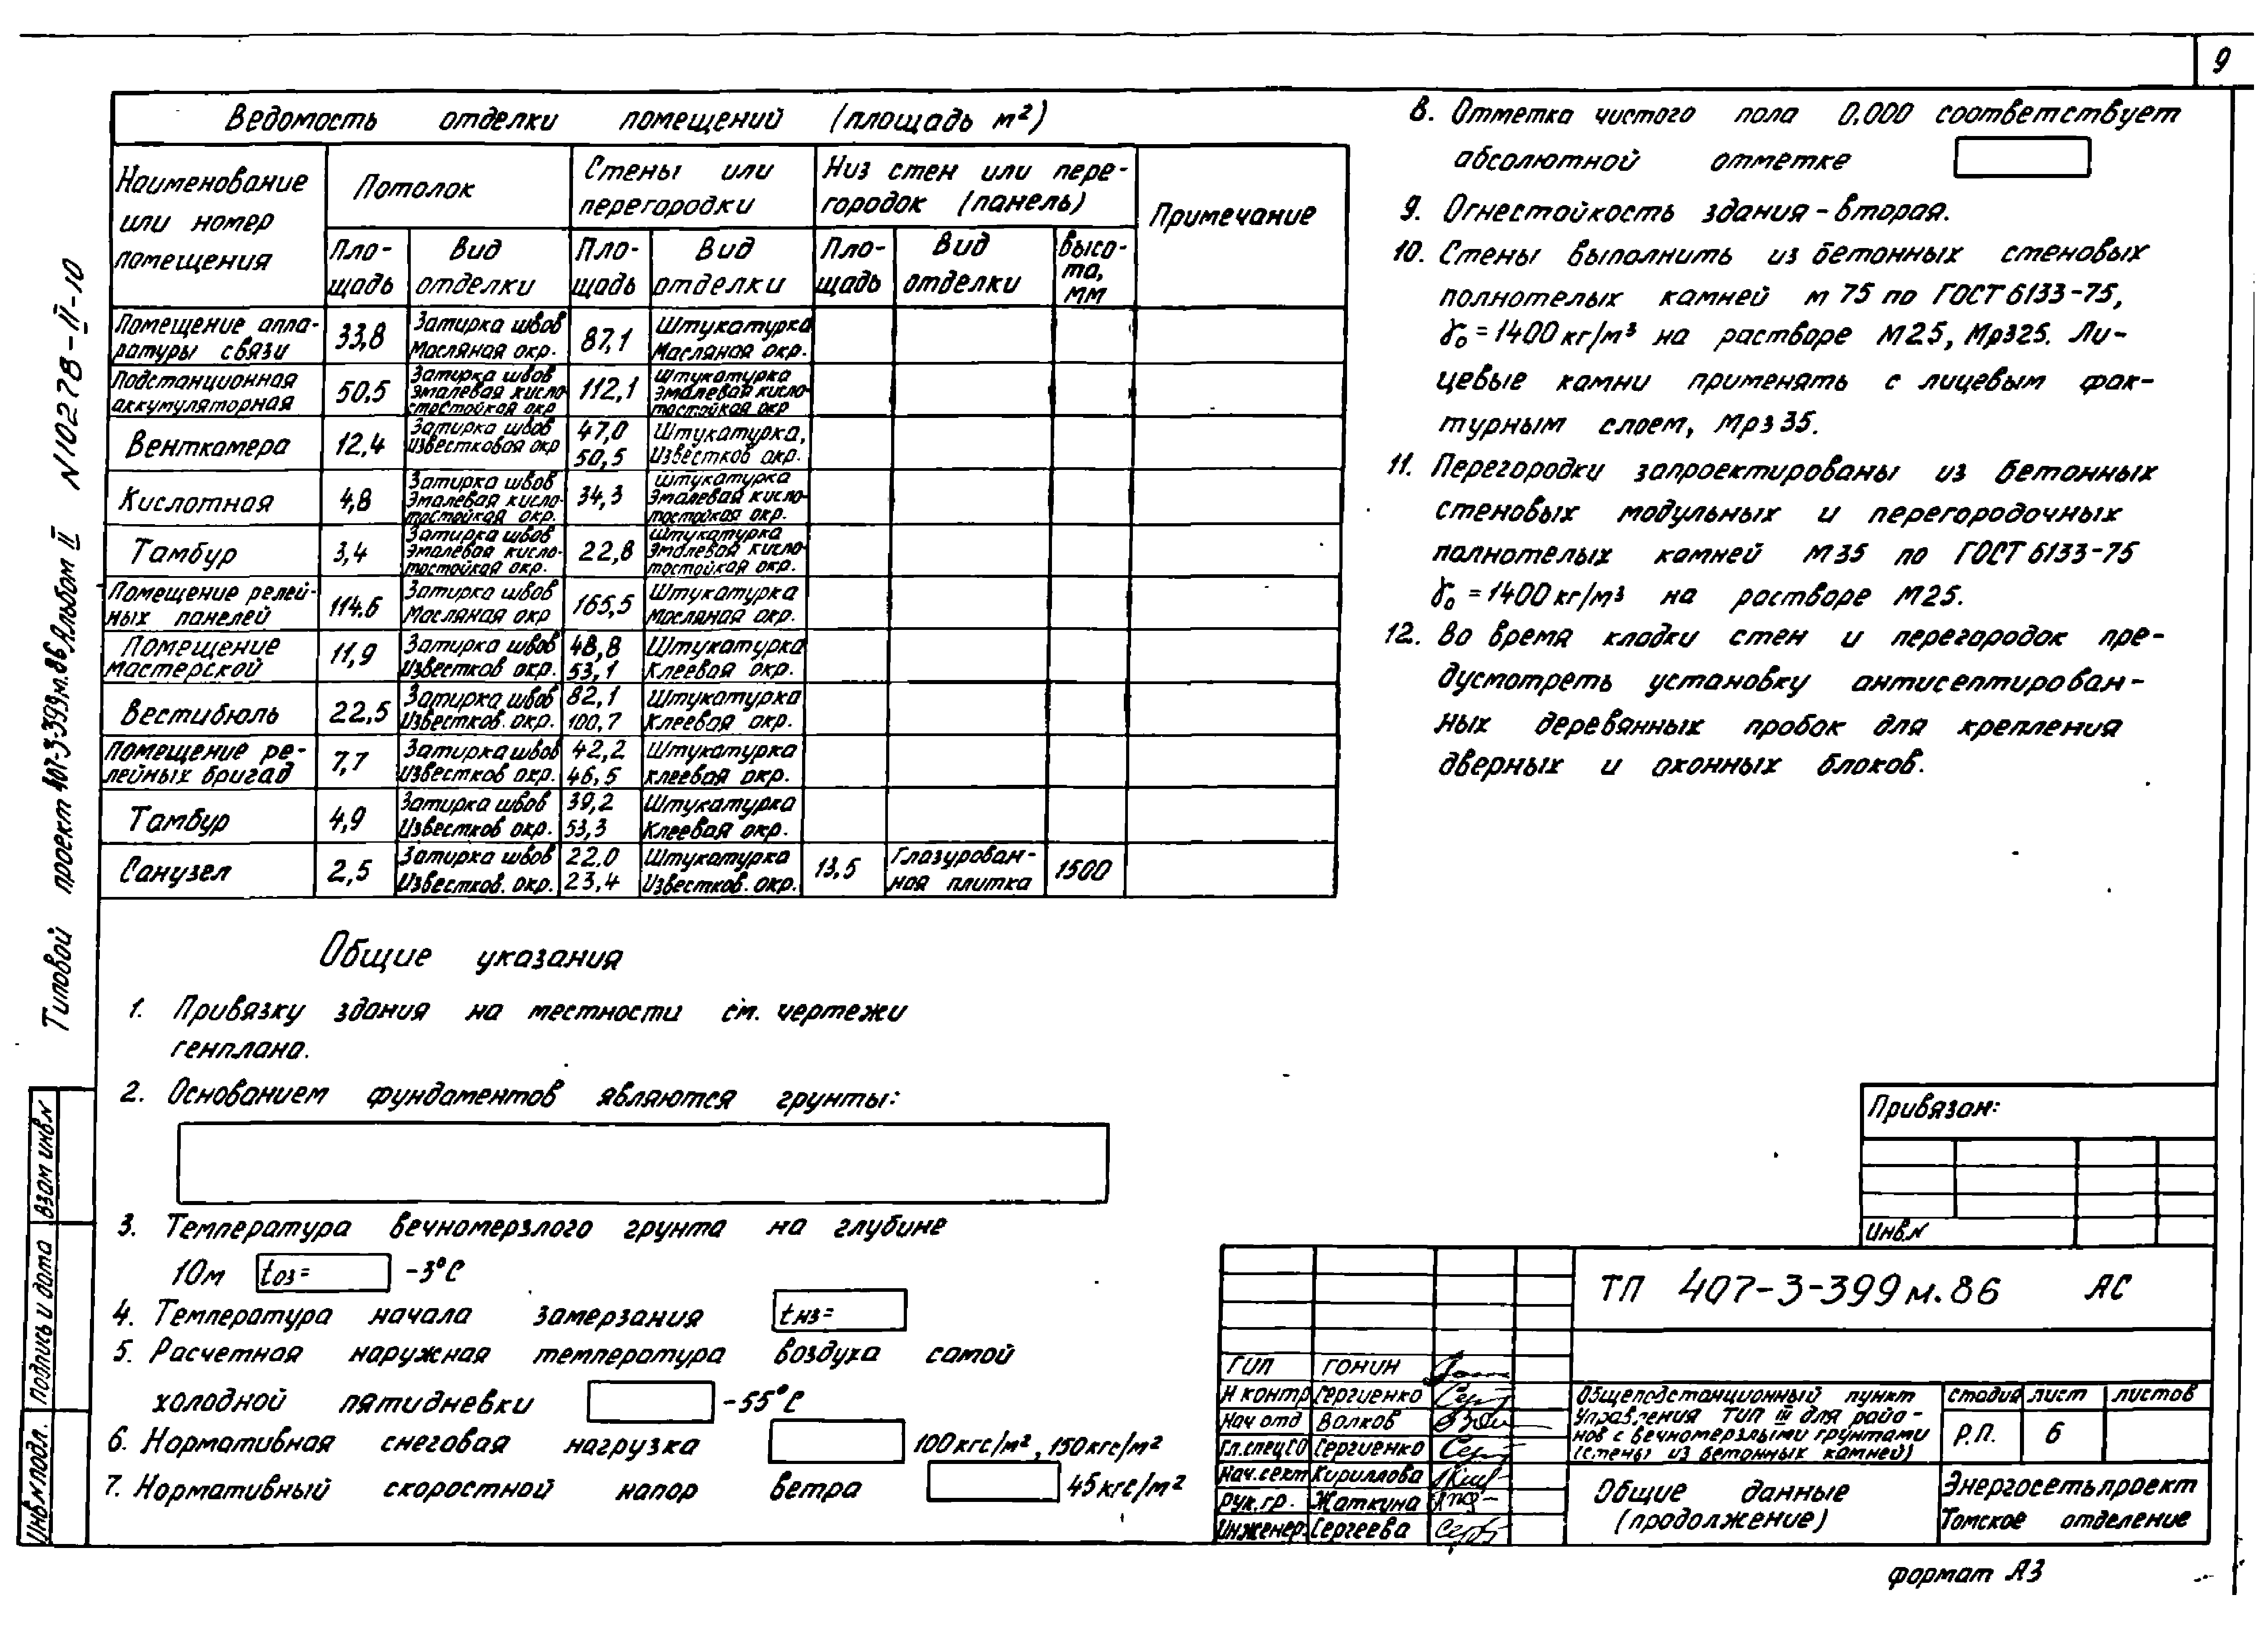 9
Ведомость отделки помещений (площадь м²)
Наименование или номер помещения
Потолок
Стены или перегородки
Низ стен или перегородок (панель)
Примечание
Площадь
Вид отделки
Площадь
Вид отделки
Площадь
Вид отделки
Высота, мм
Помещение аппаратуры связи 33,8 Затирка швов Масляная окр. 87,1 Штукатурка Масляная окр.
Подстанционная аккумуляторная 50,5 Затирка швов Эмалевая кислостойкая окр 112,1 Штукатурка Эмалевая кислотостойкая окр
Венткамера 12,4 Затирка швов Известковая окр 47,0 50,5 Штукатурка, Известков окр.
Кислотная 4,8 Затирка швов Эмалевая кислотостойкая окр. 34,3 Штукатурка Эмалевая кислотостойкая окр.
Тамбур 3,4 Затирка швов Эмалевая кислотостойкая окр. 22,8 Штукатурка Эмалевая кислотостойкая окр.
Помещение релейных панелей 114.6 Затирка швов Масляная окр 165,5 Штукатурка Масляная окр.
Помещение мастерской 11,9 Затирка швов Известков окр. 48,8 53,1 Штукатурка Клеевая окр.
Вестибюль 22,5 Затирка швов Известков. окр. 82,1 100,7 Штукатурка Клеевая окр.
Помещение релейных бригад 7,7 Затирка швов Известков окр. 42,2 46,5 Штукатурка клеевая окр.
Тамбур 4,9 Затирка швов Известков окр. 39,2 53,3 Штукатурка Клеевая окр.
Санузел 2,5 Затирка швов Известков. окр. 22.0 23,4 Штукатурка Известков. окр. 13,5 Глазурованная плитка 1500
Общие указания
1. Привязку здания на местности см. чертежи
генплана.
2. Основанием фундаментов являются грунты:
3. Температура вечномерзлого грунта на глубине
10м tоз= -3°С
4. Температура начала замерзания tнз=
5. Расчетная наружная температура воздуха самой
холодной пятидневки -55°С
6. Нормативная снеговая нагрузка 100кгс/м², 150кгс/м²
7. Нормативный скоростной напор ветра 45кгс/м²
8. Отметка чистого пола 0.000 соответствует
абсолютной отметке
9. Огнестойкость здания - вторая.
10. Стены выполнить из бетонных стеновых
полнотелых камней м 75 по ГОСТ 6133-75,
γ₀ = 1400 кг/м³ на растворе М25, Мрз25. Ли-
цевые камни применять с лицевым фак-
турным слоем, Мрз 35.
11. Перегородки запроектированы из бетонных
стеновых модульных и перегородочных
полнотелых камней М35 по ГОСТ 6133-75
γ₀ = 1400 кг/м³ на растворе М25.
12. Во время кладки стен и перегородок пре-
дусмотреть установку антисептирован-
ных деревянных пробок для крепления
дверных и оконных блоков.
Типовой проект 407-3-399м.86 Альбом II N10278-II-10
Взам инв.N
Подпись и дата
Инв.N подл.
Привязан:
Инв.N
ТП 407-3-399м.86 АС
ГИП Гонин
Н контр Сергиенко
Нач отд Волков
Гл.спец СО Сергиенко
Нач.сект Кириллова
Рук.гр. Жаткина
Инженер. Сергеева
Общеподстанционный пункт
управления тип III для райо-
нов с вечномерзлыми грунтами
(стены из бетонных камней)
стадия лист листов
Р.П. 6
Общие данные
(продолжение)
Энергосетьпроект
Томское отделение
формат А3